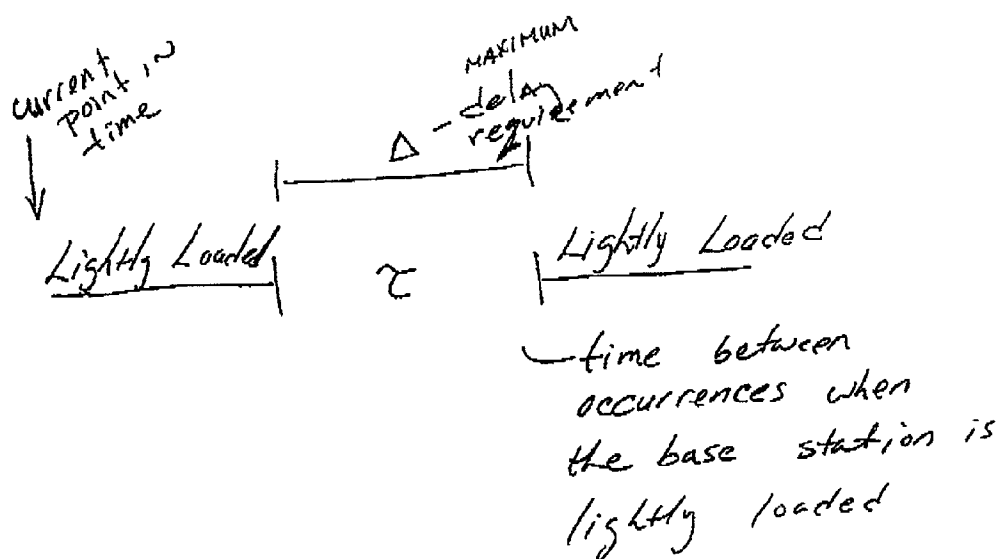 current
point in
time
MAXIMUM
Δ - delay
requirement
Lightly Loaded
τ
Lightly Loaded
time between
occurrences when
the base station is
lightly loaded